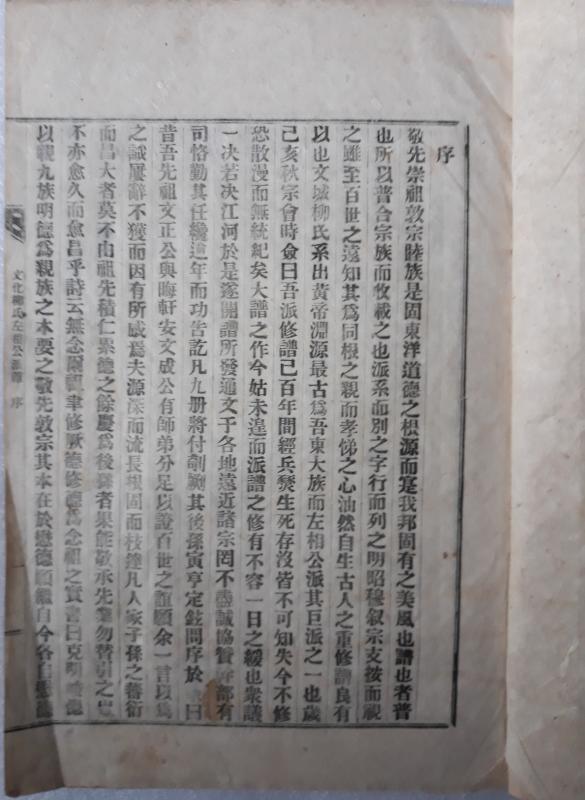 序
敬先崇祖敦宗睦族是固東洋道德之根源而寔我邦固有之美風也譜也者普
也所以普合宗族而收載之也派系而別之字行而列之明昭穆叙宗支按而視
之雖至百世之遠知其爲同根之親而孝悌之心油然自生古人之重修譜良有
以也文城柳氏系出黃帝淵源最古爲吾東大族而左相公派其巨派之一也歲
己亥秋宗會時僉曰吾派修譜已百年間經兵燹生死存沒皆不可知失今不修
恐散漫而無統紀矣大譜之作今姑未遑而派譜之修有不容一日之緩也衆議
一决若决江河於是遂開譜所發通文于各地遠近諸宗罔不盡誠協贊 部有
司恪勤其任纔過年而功告訖凡九册將付剞劂其後孫寅亨定鉉問序於 曰
昔吾先祖文正公與晦軒安文成公有師弟分足以證百世之誼願余一言以爲
之識屢辭不獲而因有所感焉夫源深而流長根固而枝達凡人家子孫之蕃衍
而昌大者莫不由祖先積仁累德之餘慶爲後孫者果能敬承先業勿替引之豈
不亦愈久而愈昌乎詩云無念爾祖聿修厥德修德爲念祖之實書曰克明 德
以親九族明德爲親族之本要之敬先敦宗其本在於懋德願繼自今各自懋德
文化柳氏左相公派譜 序